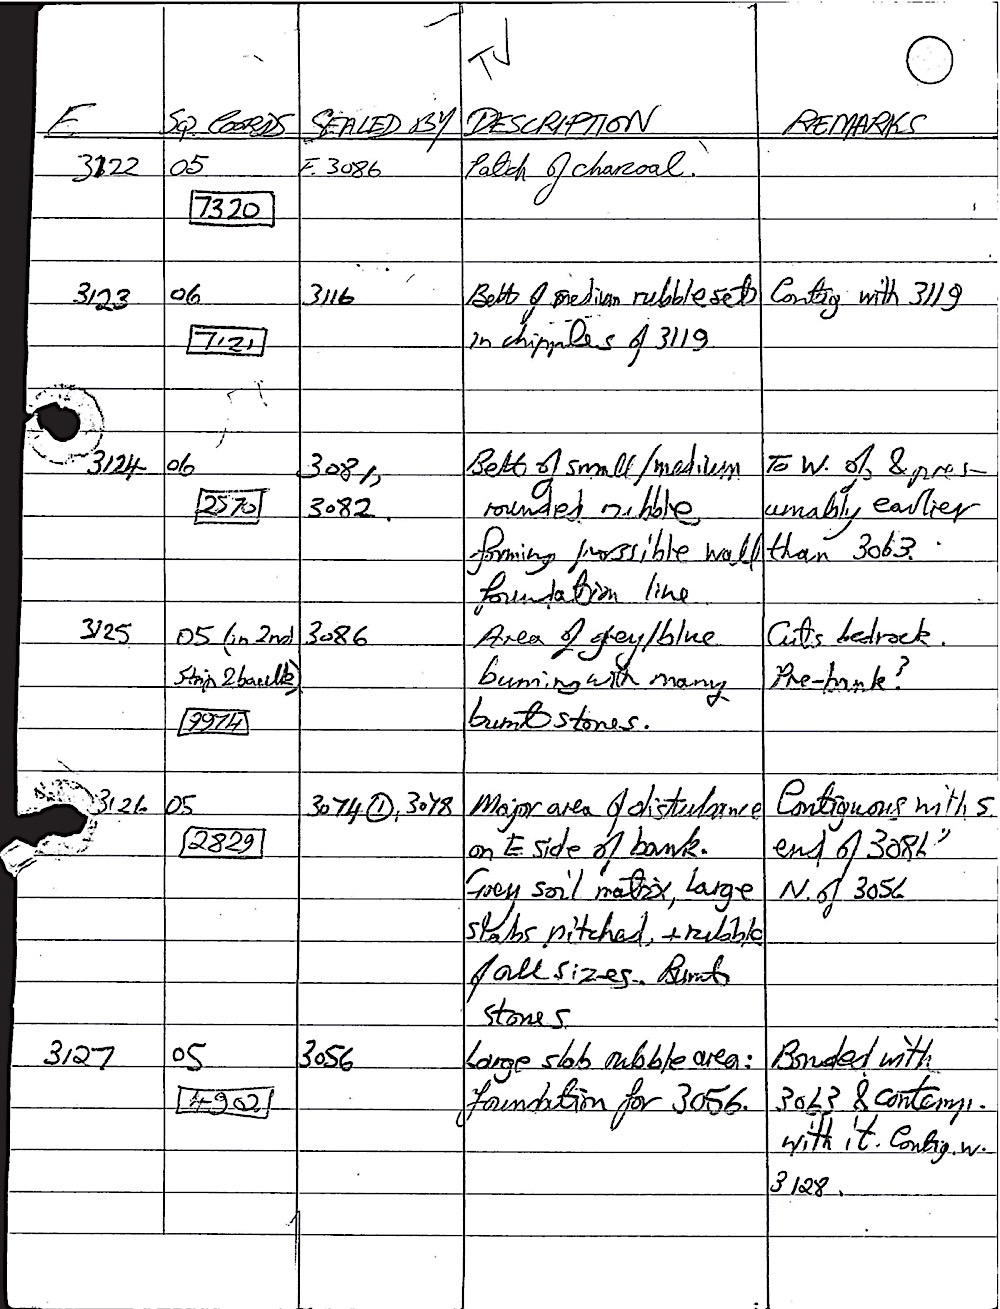 TJ
F SQ. COORDS SEALED BY DESCRIPTION REMARKS
3122 05 F. 3086 Patch of charcoal.
7320
3123 06 3116 Belt of medium rubble set Contig with 3119
7121 in chipples of 3119
3124 06 3081, Belt of small/medium To W. of, & pres-
2570 3082. rounded rubble umably earlier
forming possible wall than 3063.
foundation line
3125 05 (in 2nd 3086 Area of grey/blue Cuts bedrock.
strip 2 baulk) burning with many Pre-bank?
9974 burnt stones.
3126 05 3074 ①, 3078 Major area of disturbance Contiguous with S
2829 on E side of bank. end of 3086"
Grey soil matrix, large N. of 3056
slabs pitched, + rubble
of all sizes. Burnt
stones
3127 05 3056 Large slab rubble area: Bonded with
4902 foundation for 3056. 3063 & contemp.
with it. Contig. w.
3128.